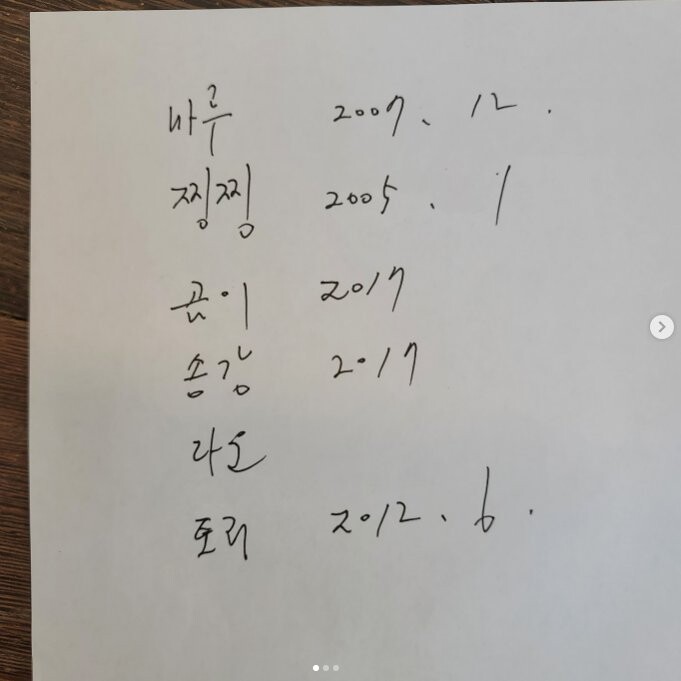 마루 2007. 12.
찡찡 2005. 1
곰이 2017
송강 2017
라오
토리 2012. 6.